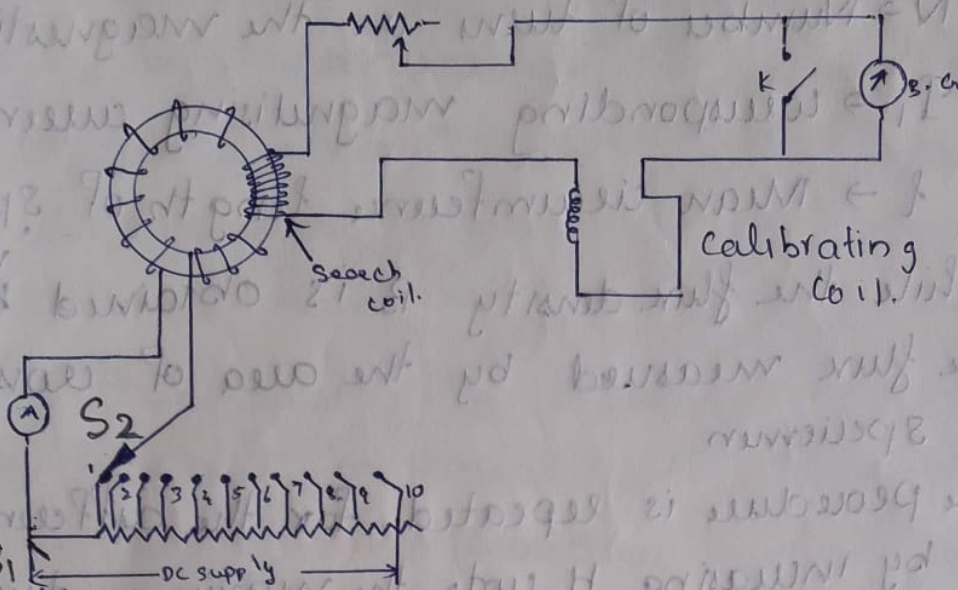 K
B. G
Search
coil.
Calibrating
Coil.
A
S2
1 2 3 4 5 6 7 8 9 10
DC supply